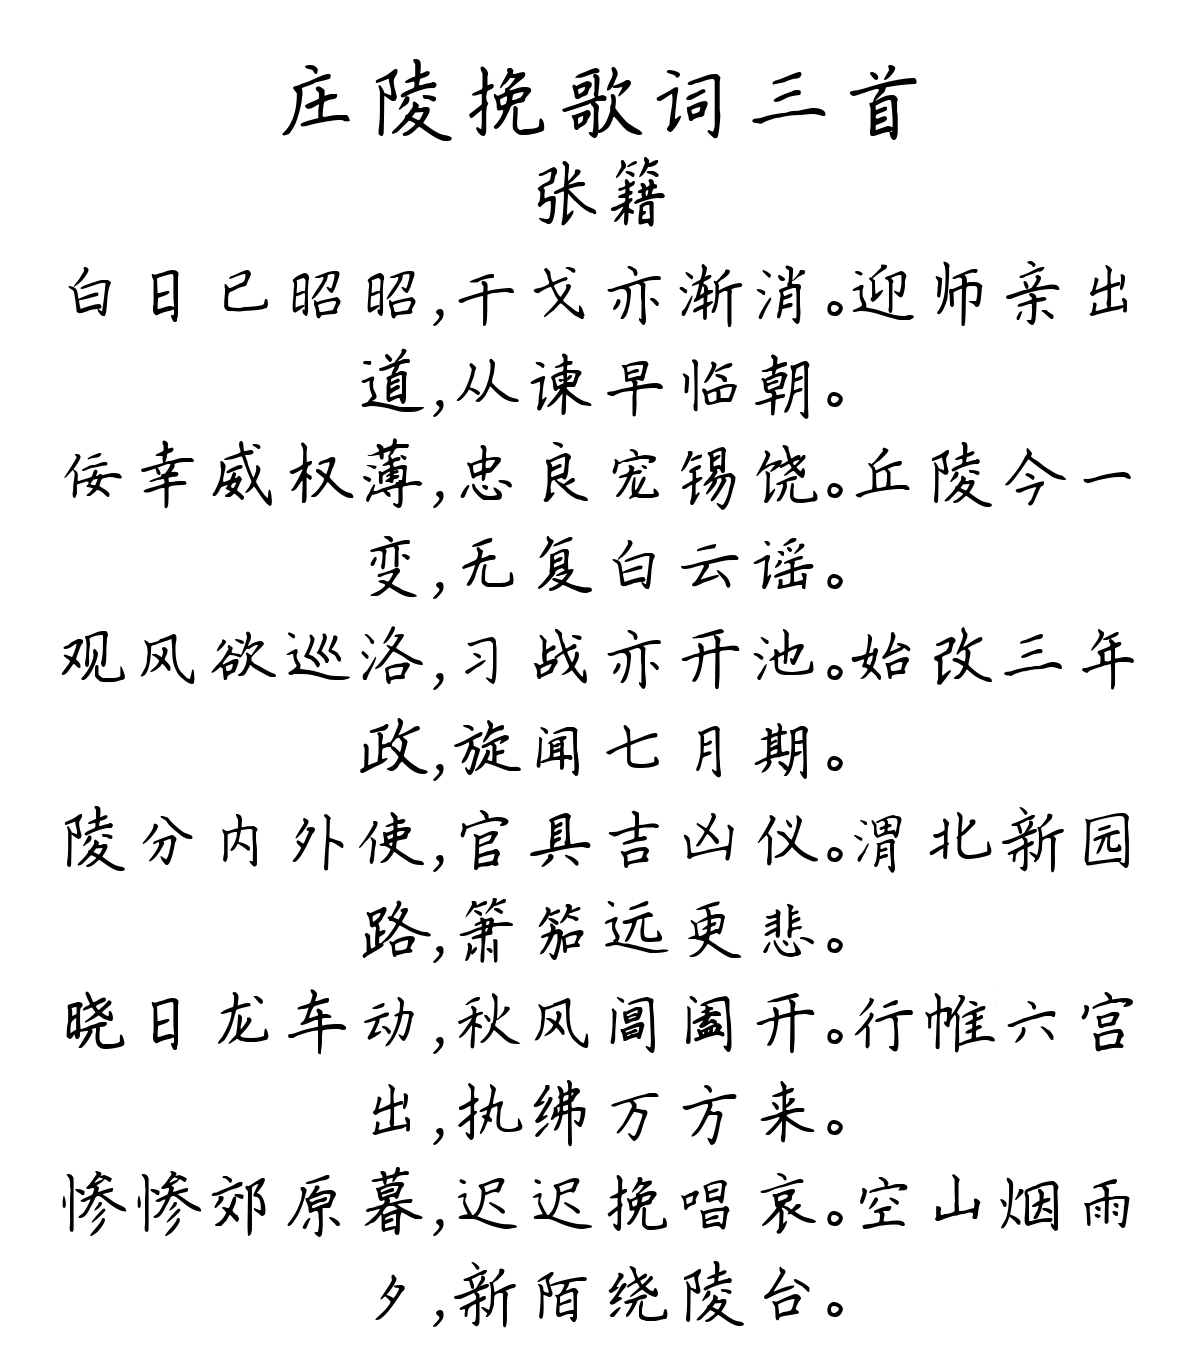 庄陵挽歌词三首
张籍
白日已昭昭,干戈亦渐消。迎师亲出
道,从谏早临朝。
佞幸威权薄,忠良宠锡饶。丘陵今一
变,无复白云谣。
观风欲巡洛,习战亦开池。始改三年
政,旋闻七月期。
陵分内外使,官具吉凶仪。渭北新园
路,箫笳远更悲。
晓日龙车动,秋风阊阖开。行帷六宫
出,执绋万方来。
惨惨郊原暮,迟迟挽唱哀。空山烟雨
夕,新陌绕陵台。